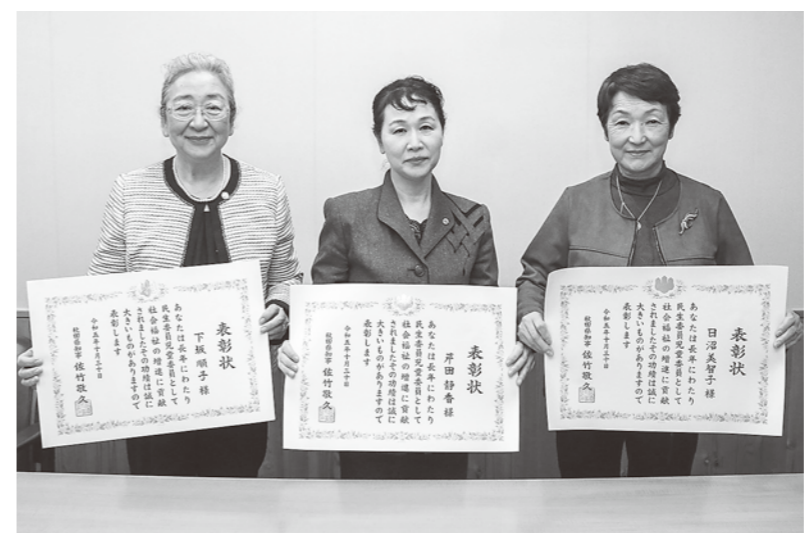 表彰状
下坂順子様
あなたは長年にわたり
民生委員児童委員として
社会福祉の増進に貢献
されましたその功績は誠に
大きいものがありますので
表彰します
令和五年十月三十日
秋田県知事 佐竹敬久
表彰状
芹田静香様
あなたは長年にわたり
民生委員児童委員として
社会福祉の増進に貢献
されましたその功績は誠に
大きいものがありますので
表彰します
令和五年十月三十日
秋田県知事 佐竹敬久
表彰状
日沼美智子様
あなたは長年にわたり
民生委員児童委員として
社会福祉の増進に貢献
されましたその功績は誠に
大きいものがありますので
表彰します
令和五年十月三十日
秋田県知事 佐竹敬久